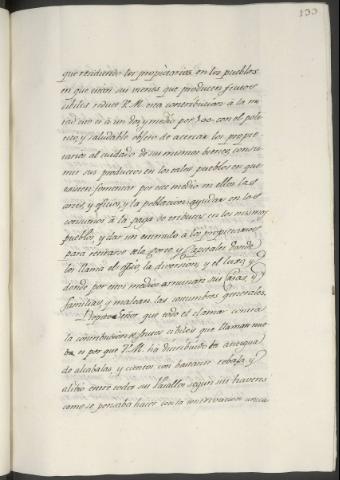 133
que residiendo los propietarios en los pueblos
en que estén sus rentas que producen frutos
civiles reduce V.M. esta contribucion à la mi
tad esto es à un dos y medio por 100 con el poli
tico, y saludable objeto de acercar los propie
tarios al cuidado de sus mismos bienes, consu
mir sus productos en los tales pueblos en que
existen fomentar por este medio en ellos las
artes, y oficios, y la poblacion ayudar en los
consumos à la paga de tributos en los mismos
pueblos, y dar un estimulo à los propietarios
para retirarse de la Corte, y Capitales donde
los llama el ocio, la diversion, y el luxo, y
donde por estos medios arruinan sus Casas, y
familias, y malean las costumbres generales.
Vease Señor que todo el clamor contra
la contribucion de frutos civiles que llaman nue
ba es por que V.M. ha distribuido la antigua
de alcabalas, y cientos con bastante rebaja, y
alibio entre todos sus Vasallos segun sus haveres
como se pensaba hacer con la contribucion unica